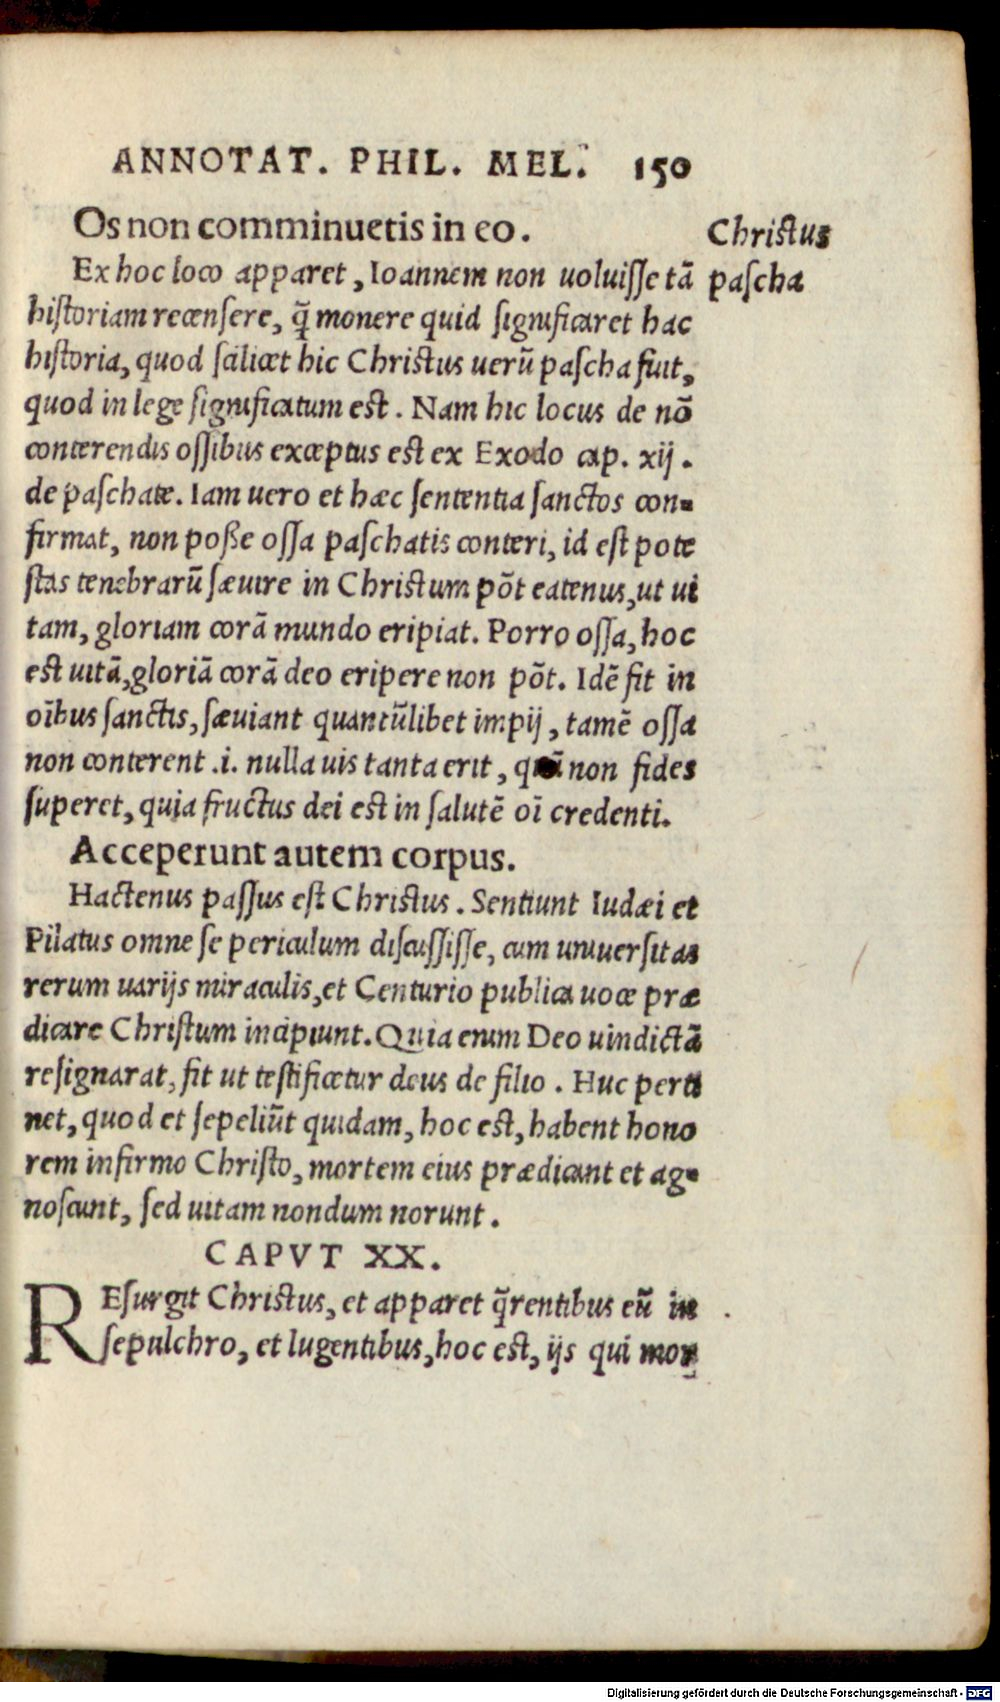 ANNOTAT. PHIL. MEL. 150
Os non comminuetis in eo.
Christus
pascha
Ex hoc loco apparet, Ioannem non uoluisse tā
historiam recensere, q̄ monere quid significaret hæc
historia, quod scilicet hic Christus uerū pascha fuit,
quod in lege significatum est. Nam hic locus de nō
conterendis ossibus exceptus est ex Exodo cap. xij.
de paschate. Iam uero et hæc sententia sanctos con-
firmat, non posse ossa paschatis conteri, id est pote
stas tenebrarū sæuire in Christum pōt eatenus, ut ui
tam, gloriam corā mundo eripiat. Porro ossa, hoc
est uitā, gloriā corā deo eripere non pōt. Idē fit in
oībus sanctis, sæuiant quantūlibet impij, tamē ossa
non conterent .i. nulla uis tanta erit, non fides
superet, quia fructus dei est in salutē oī credenti.
Acceperunt autem corpus.
Hactenus passus est Christus. Sentiunt Iudæi et
Pilatus omne se periculum discussisse, cum uniuersitas
rerum uarijs miraculis, et Centurio publica uoce præ
dicare Christum incipiunt. Quia enim Deo uindictā
resignarat, fit ut testificetur deus de filio. Huc perti
net, quod et sepeliūt quidam, hoc est, habent hono
rem infirmo Christo, mortem eius prædicant et ag-
noscunt, sed uitam nondum norunt.
CAPVT XX.
REsurgit Christus, et apparet q̄rentibus eū in
sepulchro, et lugentibus, hoc est, ijs qui mor
Digitalisierung gefördert durch die Deutsche Forschungsgemeinschaft - DFG